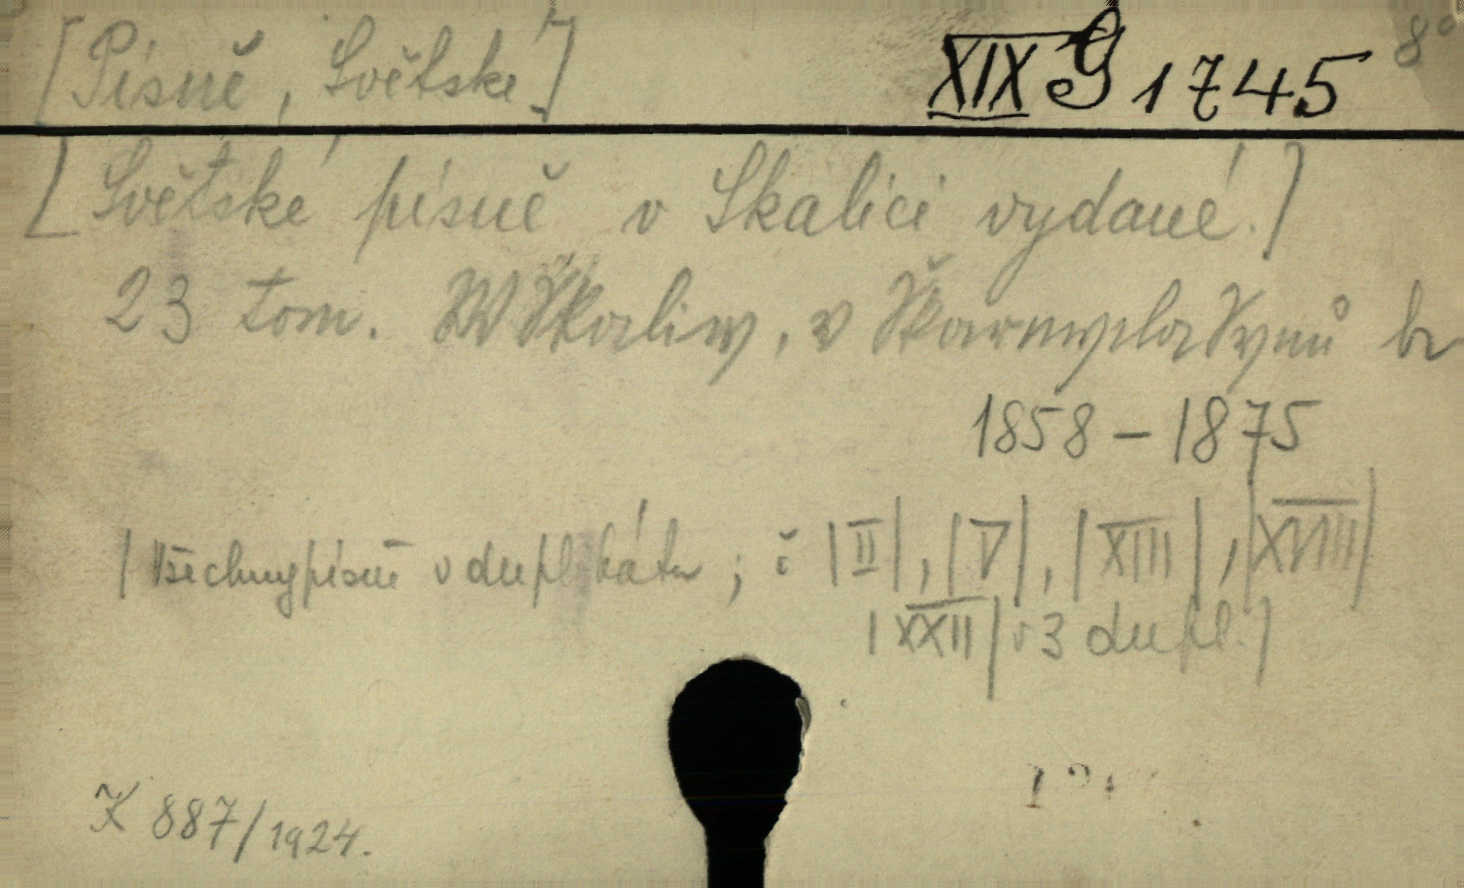 [Písně, Světské.] XIX G 1745 8°
[Světské písně v Skalici vydané.]
23 tom. W Skalicy, v Škarnycla Synů br
1858 – 1875
| Všechny písně v duplikátu ; č |II|, |V|, |XIII|, |XVIII|
|XXII| v 3 dupl.]
K 887/1924.